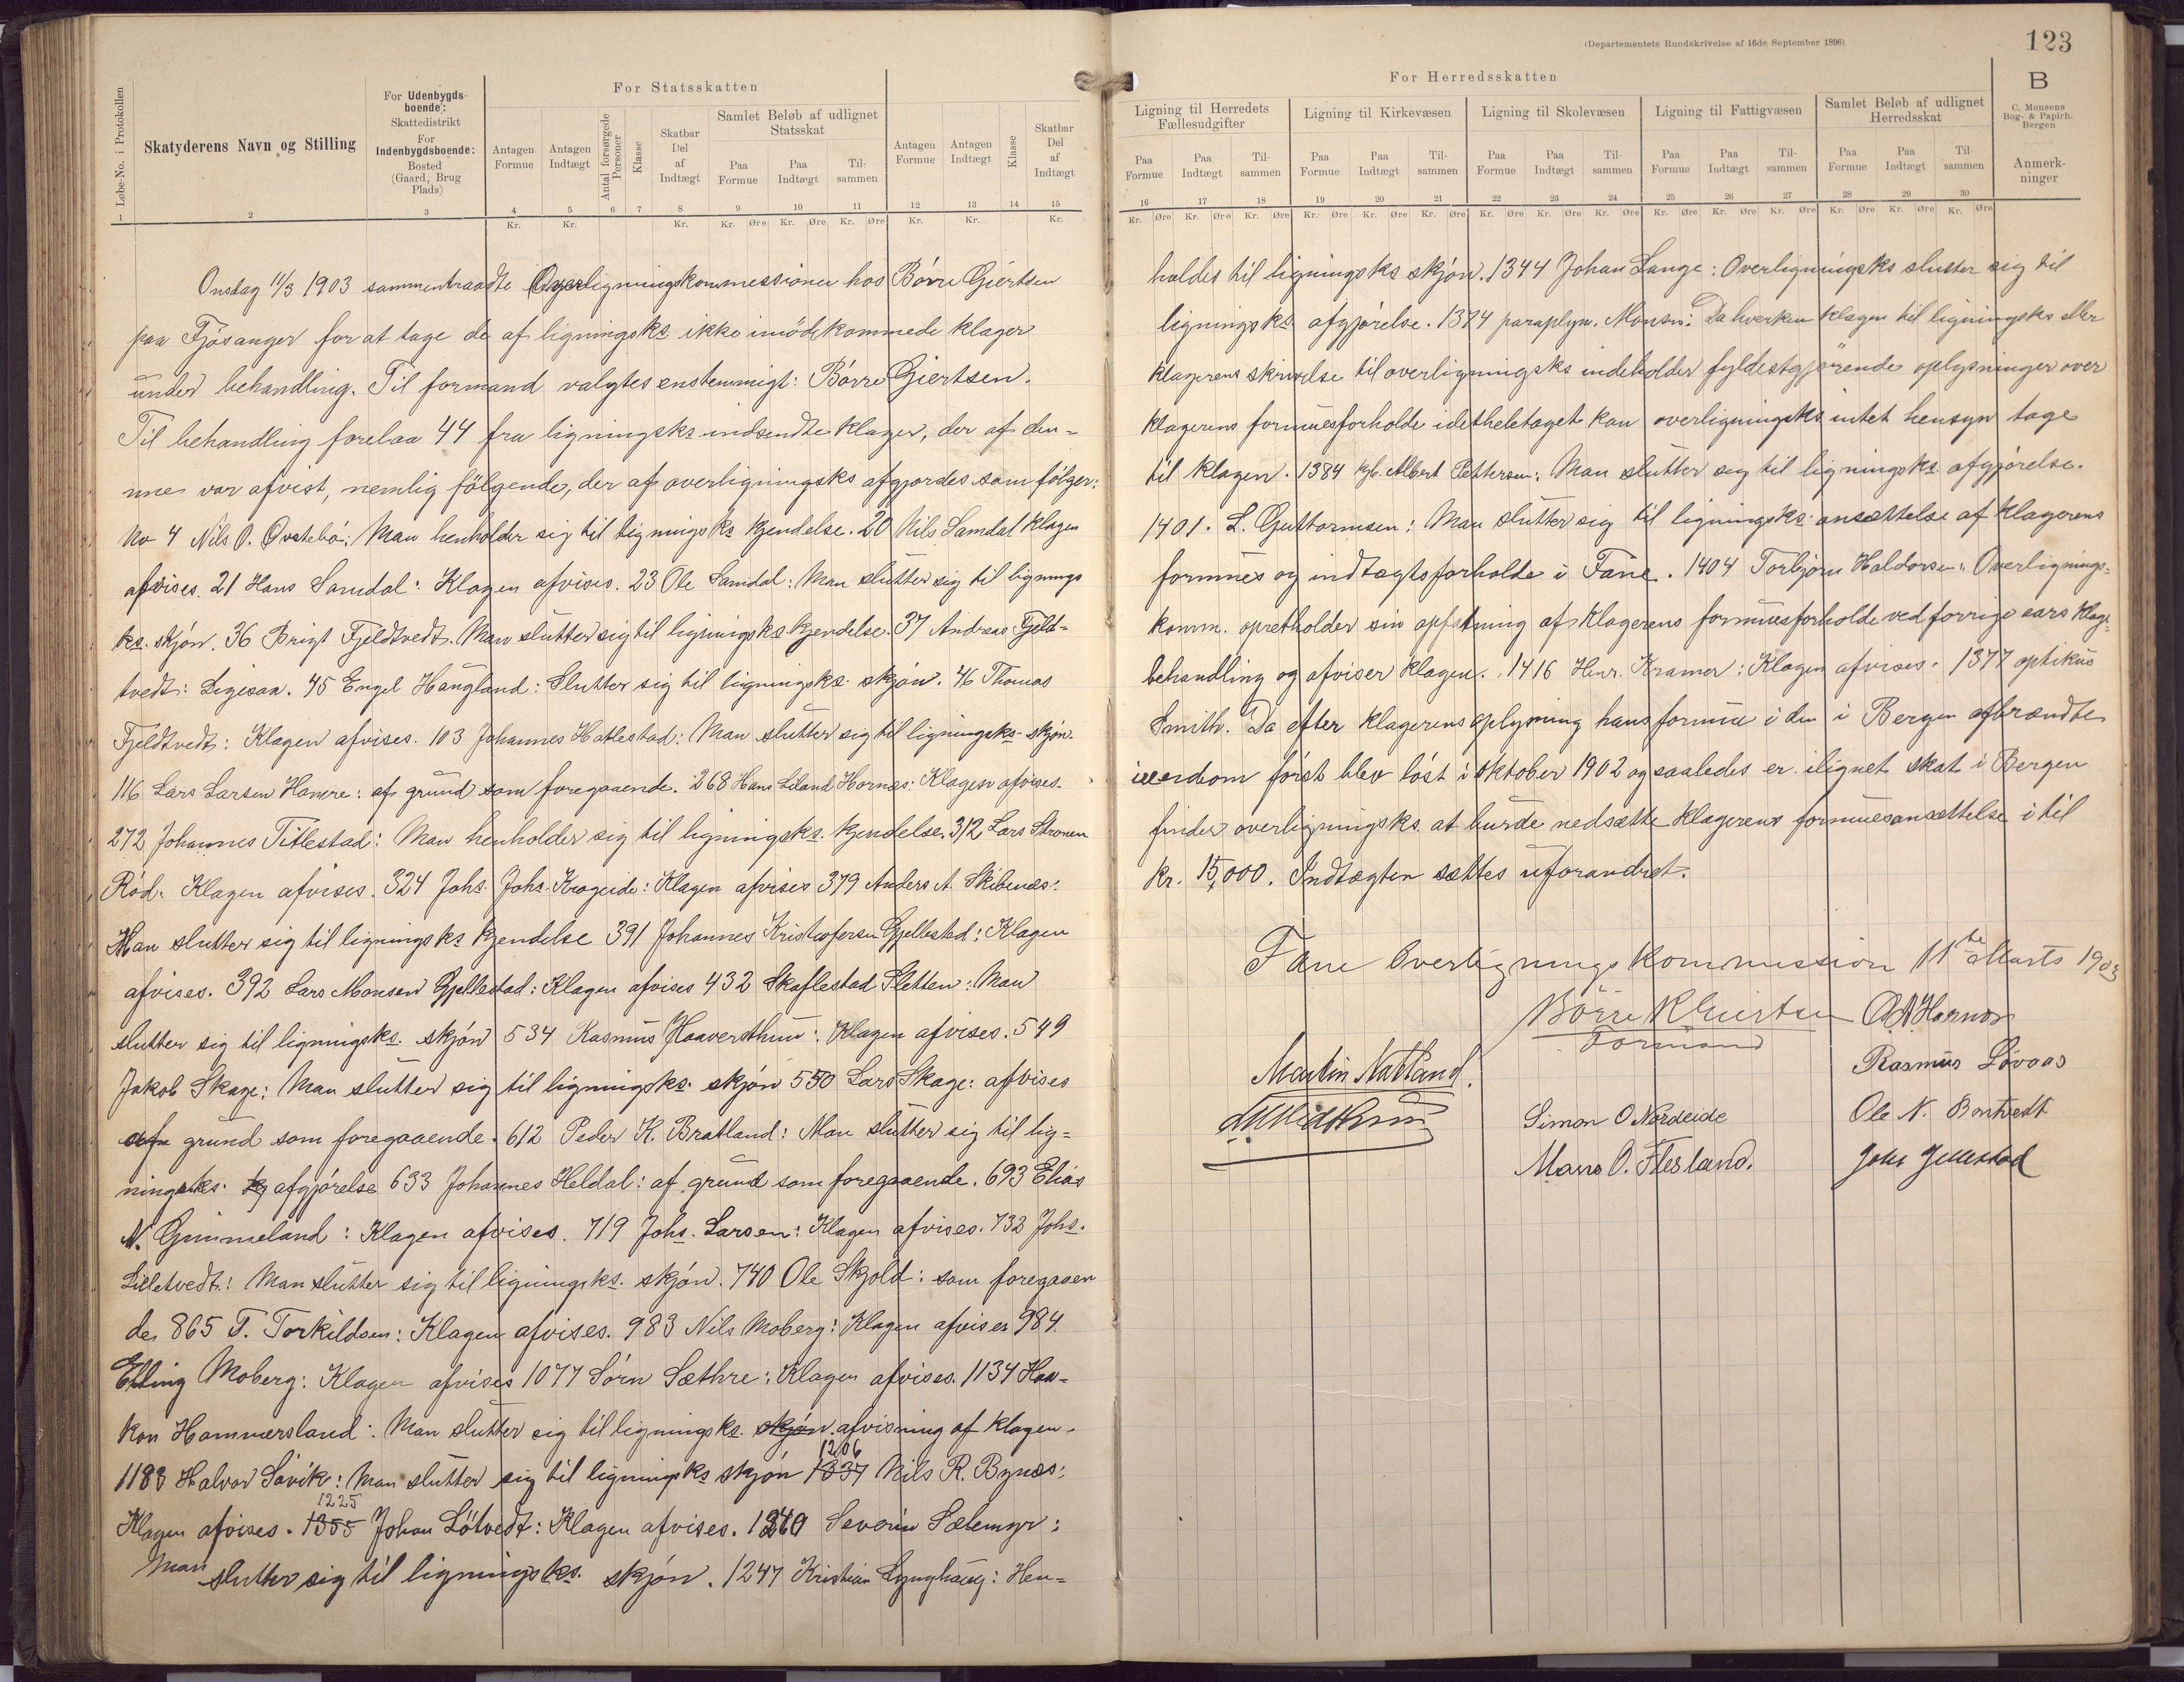 (Departementets Rundskrivelse af 16de September 1896)
123
For Statsskatten
For Herredsskatten
B
C. Monsens
Bog- & Papirh.
Bergen
Løbe-No. i Protokollen
Skatyderens Navn og Stilling
For Udenbygds-
boende:
Skattedistrikt
For
Indenbygdsboende:
Bosted
(Gaard, Brug
Plads)
Antagen Formue
Antagen Indtægt
Antal forsørgede Personer
Klasse
Skatbar Del af Indtægt
Samlet Beløb af udlignet Statsskat
Paa Formue
Paa Indtægt
Til-sammen
Antagen Formue
Antagen Indtægt
Klasse
Skatbar Del af Indtægt
Ligning til Herredets Fællesudgifter
Ligning til Kirkevæsen
Ligning til Skolevæsen
Ligning til Fattigvæsen
Samlet Beløb af udlignet Herredsskat
Paa Formue Paa Indtægt Til-sammen Paa Formue Paa Indtægt Til-sammen Paa Formue Paa Indtægt Til-sammen Paa Formue Paa Indtægt Til-sammen Paa Formue Paa Indtægt Til-sammen
Anmerk-
ninger
1 2 3 4 5 6 7 8 9 10 11 12 13 14 15
Kr. Kr. Kr. Kr. Øre Kr. Øre Kr. Øre Kr. Kr. Kr.
16 17 18 19 20 21 22 23 24 25 26 27 28 29 30
Kr. Øre Kr. Øre Kr. Øre Kr. Øre Kr. Øre Kr. Øre Kr. Øre Kr. Øre Kr. Øre Kr. Øre Kr. Øre Kr. Øre Kr. Øre Kr. Øre Kr. Øre
Onsdag 11/3 1903 sammentraadte Overligningskommessionen hos Börre Giertsen
paa Fjösanger for at tage de af ligningsks ikke imödekommede klager
under behandling. Til formand valgtes enstemmigt: Börre Giertsen.
Til behandling forelaa 44 fra ligningsks indsendte klager, der af den-
ne var afvist, nemlig fölgende, der af overligningsks afgjordes som fölger:
No 4 Nils O. Øvstebö: Man henholder sig til ligningsks kjendelse. 20 Nils Samdal klagen
afvises. 21 Hans Samdal: Klagen afvises. 23 Ole Samdal: Man slutter sig til lignings
ks. skjön. 36 Brigt Fjeldtvedt. Man slutter sig til ligningsks. kjendelse. 37 Andreas Fjeld-
tvedt: Ligesaa. 45 Engel Haugland: Slutter sig til ligningsks. skjön. 46 Thomas
Fjeldtvedt: Klagen afvises. 103 Johannes Hatlestad: Man slutter sig til ligningsks. skjön.
116 Lars Larsen Hamre: af grund som foregaaende. 268 Hans Liland Hornæs: Klagen afvises.
272 Johannes Titlestad: Man henholder sig til ligningsks. kjendelse. 312 Lars Stronen
Röd. Klagen afvises. 324 Johs. Johs. Krogeide: Klagen afvises 379 Anders A. Skibenæs:
Man slutter sig til ligningsks kjendelse 391 Johannes Kristofersen Gjellestad: Klagen
afvises. 392 Lars Monsen Gjellestad: Klagen afvises 432 Skeflestad Sletten: Man
slutter sig til ligningsks. skjön 534 Rasmus Haaversthun: Klagen afvises. 549
Jakob Skage: Man slutter sig til ligningsks. skjön 550 Lars Skage: afvises
af grund som foregaaende. 612 Peder K. Bratland: Man slutter sig til lig-
ningsks. afgjörelse 633 Johannes Heldal: af grund som foregaaende. 693 Elias
N. Grimmeland: Klagen afvises. 719 Johs. Larsen: Klagen afvises. 732 Johs.
Lilletvedt: Man slutter sig til ligningsks. skjön. 740 Ole Skjold: som foregaaen
de. 865 T. Torkildsen: Klagen afvises. 983 Nils Moberg: Klagen afvises 984.
Elling Moberg: Klagen afvises 1077 Sörn Sæthre: Klagen afvises. 1134 Haa-
kon Hammersland: Man slutter sig til ligningsks. skjön afvisning af klagen.
1183 Halvor Sövik: Man slutter sig til ligningsks skjön 1337 1206 Nils R. Bynæs:
Klagen afvises. 1355 1225 Johan Lötvedt: Klagen afvises. 1240 Severin Sælemyr:
Man slutter sig til ligningsks. skjön. 1247 Kristian Lynghaug: Hen-
holdes til ligningsks skjön. 1344 Johan Lange: Overligningsks slutter sig til
ligningsks afgjörelse. 1374 paraplym. Monsen: Da hverken klagen til ligningsks eller
klagerens skrivelse til overligningsks indeholder fyldestgjörende oplysninger over
klagerens formuesforholde idetheletaget kan overligningsks intet hensyn tage
til klagen. 1384 Albert Pettersen: Man slutter sig til ligningsks afgjörelse.
1401. L. Guttormsen: Man slutter sig til ligningsks. ansættelse af klagerens
formues og indtægtsforholde i Fane. 1404 Torbjörn Haldorsen: Overlignings-
komm. opretholder sin opfatning af klagerens formuesforholde ved forrige aars klage-
behandling og afviser klagen. 1416 Henr. Kramer: Klagen afvises. 1377 optikus
Smith. Da efter klagerens oplysning hans formue i den i Bergen afbrændte
eiendom först blev löst i oktober 1902 og saaledes er ilignet skat i Bergen
finder overligningsks. at burde nedsætte klagerens formuesansættelse i til
Kr. 15,000. Indtægten sættes uforandret.
Fane Overligningskommission 11te Marts 1903
Börre Giertsen
Formand
Martin Natland.
Simon O Nordeide
Mons O. Flesland.
Rasmus Lövaas
Ole N. Bontvedt
Johs Gjellestad